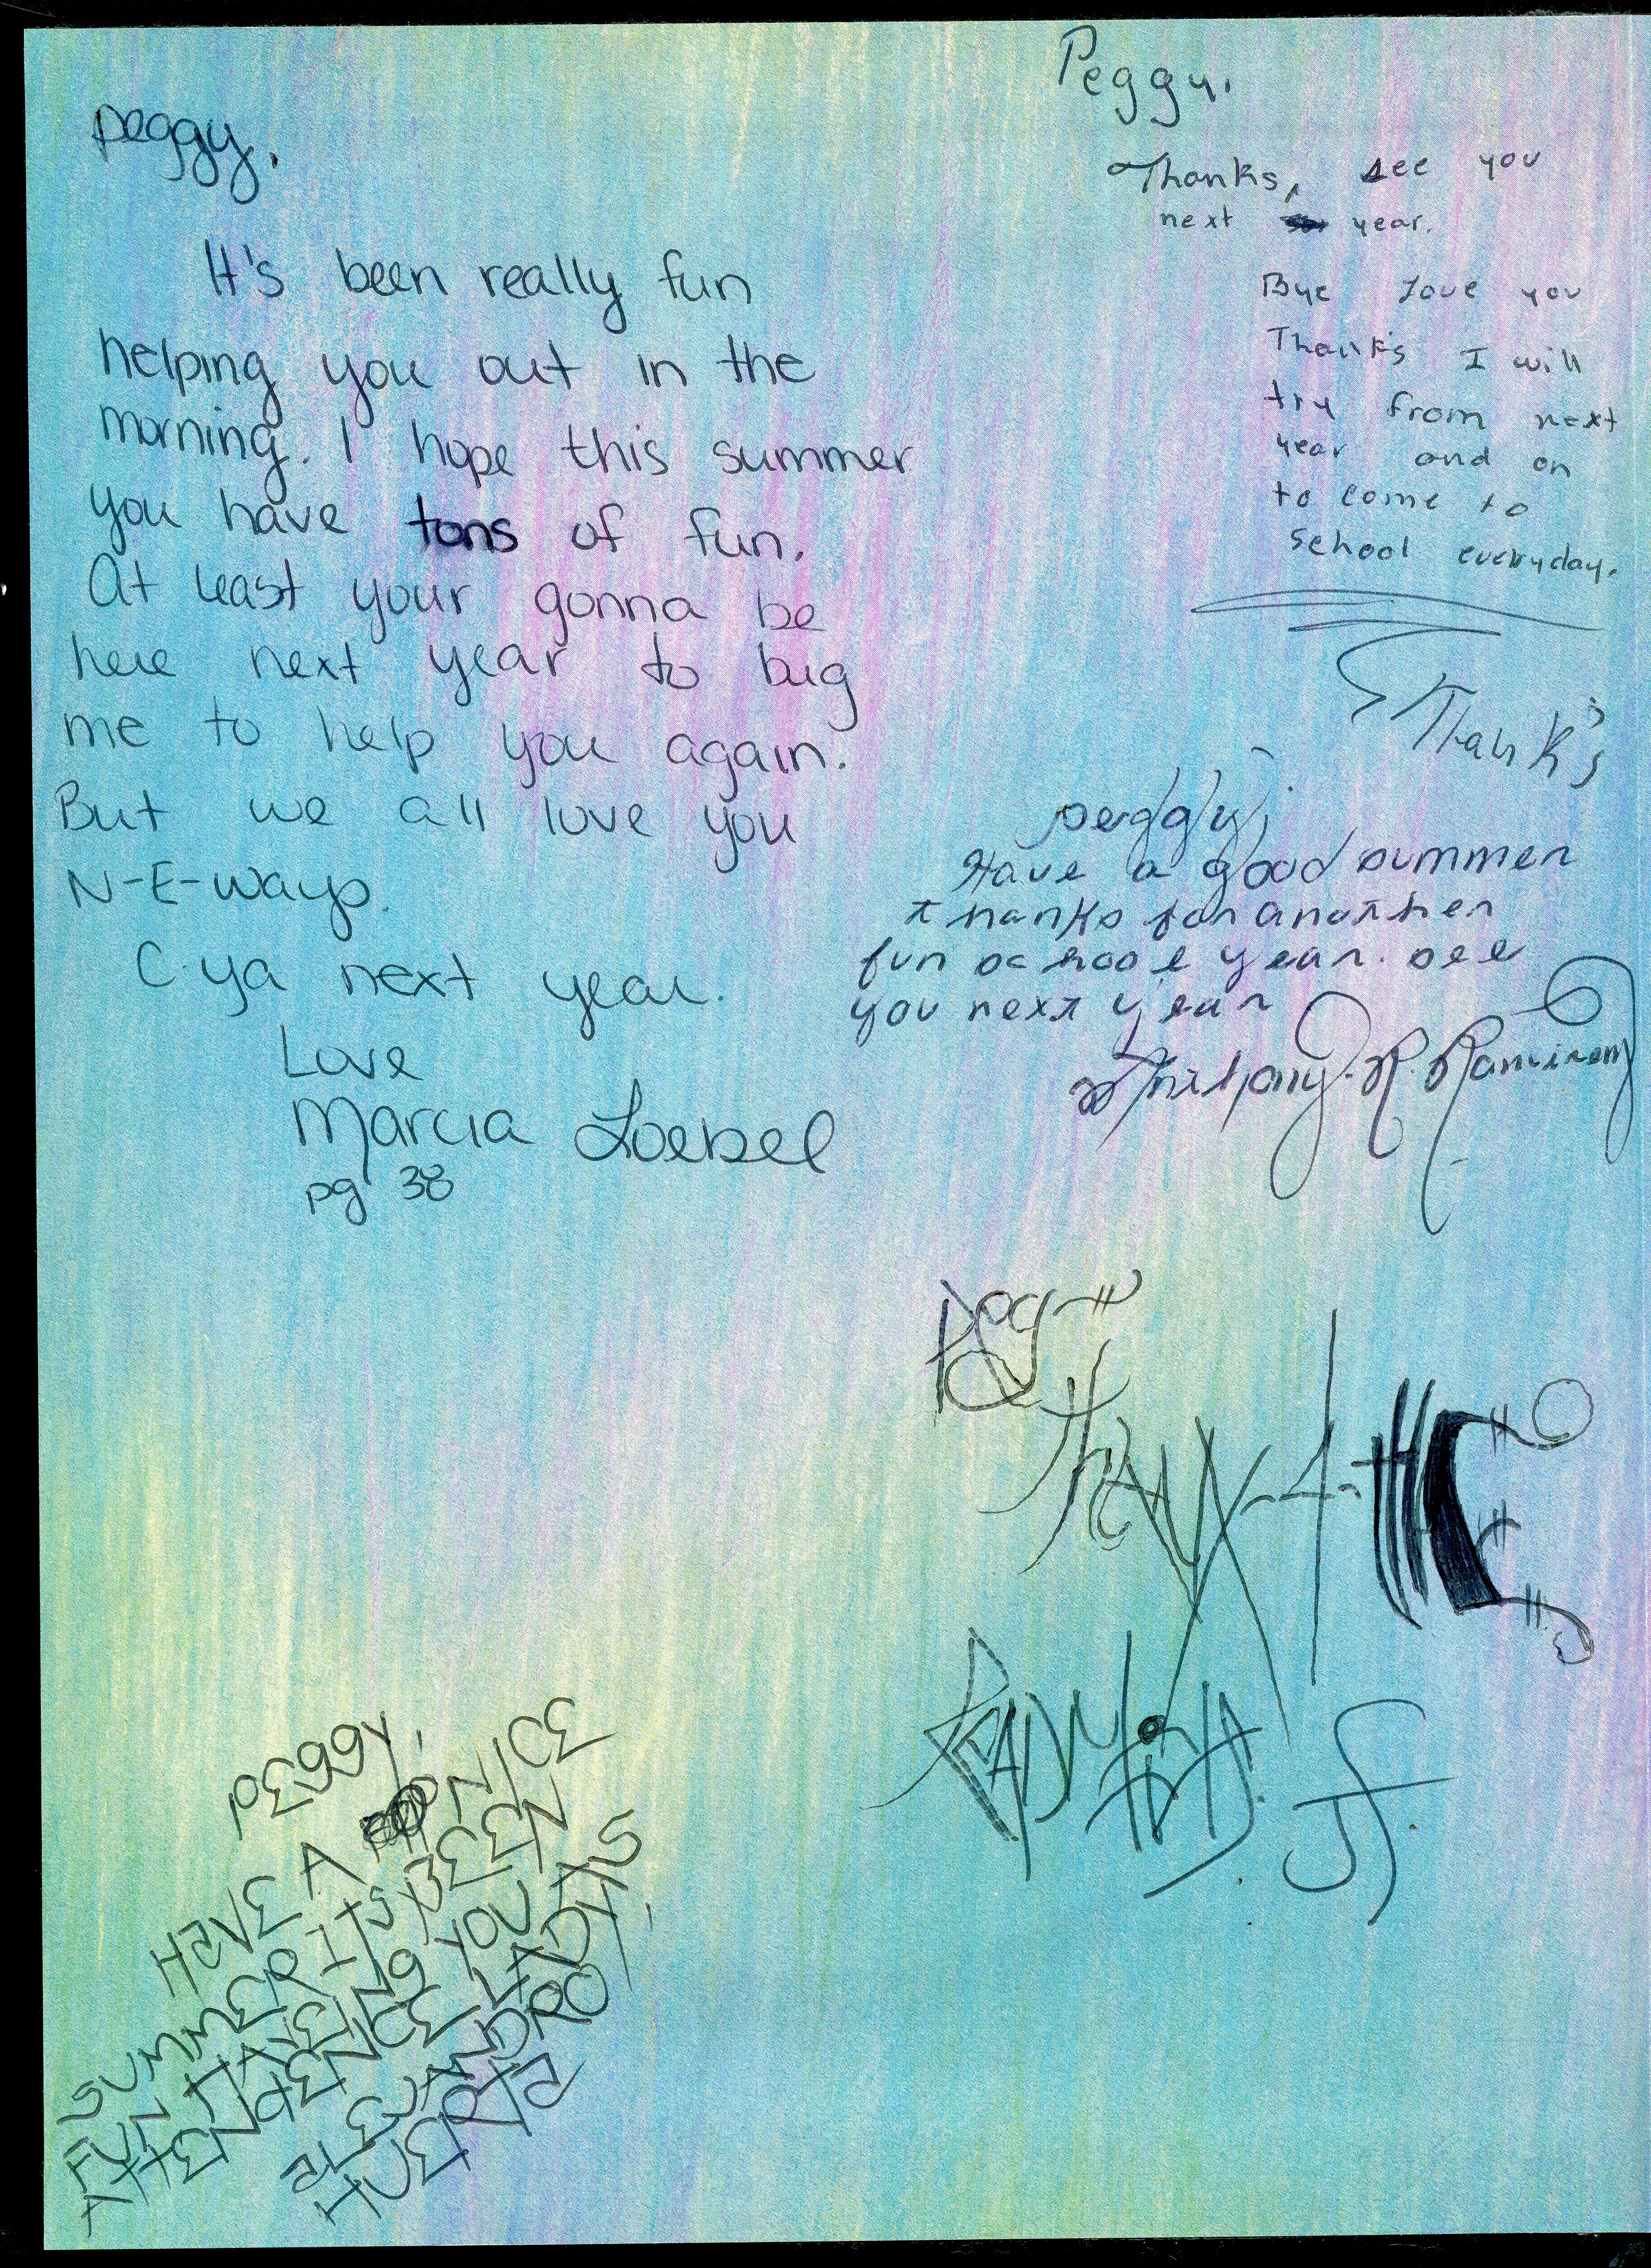 peggy,
It's been really fun
helping you out in the
morning. I hope this summer
you have tons of fun.
At least your gonna be
here next year to bug
me to help you again.
But we all love you
N-E-ways.
C-ya next year.
Love
Marcia Loebel
pg 38
Peggy,
Thanks, see you
next year.
Bye Love you
Thank's I will
try from next
year and on
to come to
School everyday.
Thank's
peggy,
Have a good summer
thanks for another
fun school year. see
you next year
Anthony. R. Ramirez
Peg
Thanx-4-
JF.
PEGGY,
HAVE A NICE
SUMMER IT'S BEEN
FUN HAVING YOU AS
ATTENDENCE LADY,